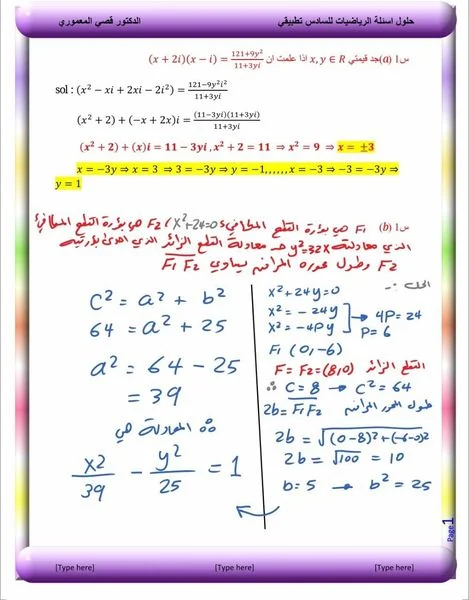 حلول اسئلة الرياضيات للسادس تطبيقي الدكتور قصي المعموري
س1 (a) جد قيمتي x, y ∈ R اذا علمت ان (x + 2i)(x − i) = (121+9y²)/(11+3yi)
sol : (x² − xi + 2xi − 2i²) = (121−9y²i²)/(11+3yi)
(x² + 2) + (−x + 2x)i = ((11−3yi)(11+3yi))/(11+3yi)
(x² + 2) + (x)i = 11 − 3yi , x² + 2 = 11 ⇒ x² = 9 ⇒ x = ±3
x = −3y ⇒ x = 3 ⇒ 3 = −3y ⇒ y = −1,,,,,, x = −3 ⇒ −3 = −3y ⇒
y = 1
س1 (b) F₁ هي بؤرة القطع المكافئ x²+24=0 ، F₂ هي بؤرة القطع المكافئ
الذي معادلته y²=32x جد معادلة القطع الزائد الذي احدى بؤرتيه
F₂ وطول محوره المرافق يساوي F₁F₂
الحل :-
x²+24y=0
x² = −24y
x² = −4Py
→ 4P = 24
P = 6
F₁ (0,−6)
القطع الزائد F = F₂ = (8,0)
∴ C = 8 → C² = 64
طول المحور المرافق 2b = F₁F₂
2b = √((0−8)²+(−6−0)²
2b = √100 = 10
b = 5 → b² = 25
C² = a² + b²
64 = a² + 25
a² = 64 − 25
= 39
∴ المعادلة هي
x²/39 − y²/25 = 1
Page1
[Type here] [Type here] [Type here]